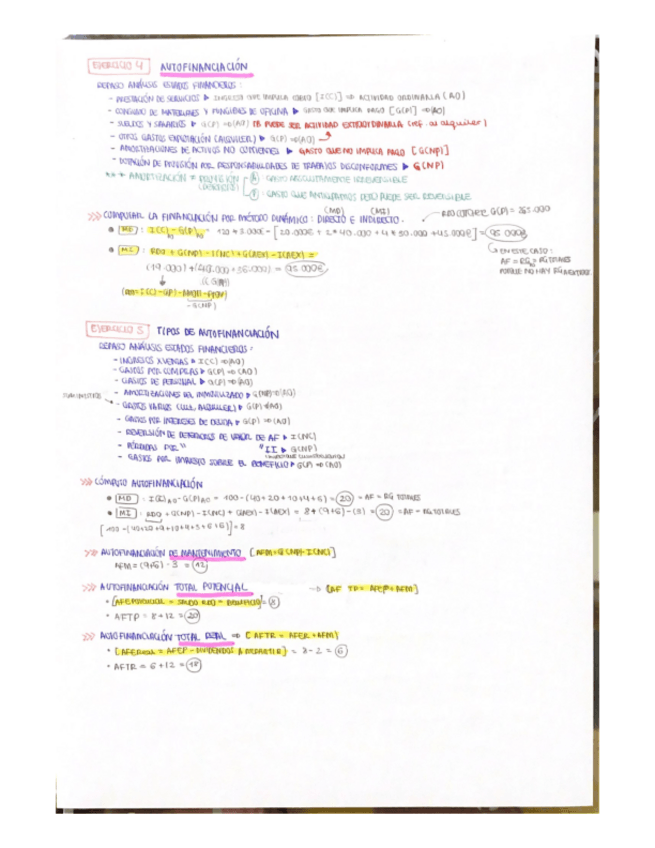 EJERCICIO 4 AUTOFINANCIACIÓN
REPASO ANÁLISIS ESTADOS FINANCIEROS:
- PRESTACIÓN DE SERVICIOS ▶ INGRESO QUE IMPLICA COBRO [I(C)] ⇒ ACTIVIDAD ORDINARIA (AO)
- CONSUMO DE MATERIALES Y FUNGIBLES DE OFICINA ▶ GASTO QUE IMPLICA PAGO [G(P)] ⇒ (AO)
- SUELDOS Y SALARIOS ▶ G(P) ⇒ (AO) PUEDE SER ACTIVIDAD EXTRAORDINARIA (ref. al alquiler)
- OTROS GASTOS EXPLOTACIÓN (ALQUILER) ▶ G(P) ⇒ (AO)
- AMORTIZACIONES DE ACTIVOS NO CORRIENTES ▶ GASTO QUE NO IMPLICA PAGO [G(NP)]
- DOTACIÓN DE PROVISIÓN POR RESPONSABILIDADES DE TRABAJOS DISCONFORMES ▶ G(NP)
** AMORTIZACIÓN ≠ PROVISIÓN (DETERIORO)
GASTO ABSOLUTAMENTE IRREVERSIBLE
GASTO QUE ANTICIPAMOS PERO PUEDE SER REVERSIBLE
>>> COMPUTAR LA FINANCIACIÓN POR MÉTODO DINÁMICO: DIRECTO E INDIRECTO.
(MD) (MI)
G(P) = 265.000
• MD: I(C) - G(P)
= 95.000€
EN ESTE CASO:
• MI: RDO + G(NP) - I(NC) + G(AEX) - I(AEX) =
(19.000) + = 95.000€
- G(NP)
EJERCICIO 5 TIPOS DE AUTOFINANCIACIÓN
REPASO ANÁLISIS ESTADOS FINANCIEROS:
- INGRESOS X VENTAS ▶ I(C) ⇒ (AO)
- GASTOS POR COMPRAS ▶ G(P) ⇒ (AO)
- GASTOS DE PERSONAL ▶ G(P) ⇒ (AO)
- AMORTIZACIONES DEL INMOVILIZADO ▶ G(NP) ⇒ (AO)
- GASTOS VARIOS (LUZ, ALQUILER) ▶ G(P) ⇒ (AO)
- GASTOS POR INTERESES DE DEUDA ▶ G(P) ⇒ (AO)
- REVERSIÓN DE DETERIOROS DE VALOR DE AF ▶ I(NC)
- PÉRDIDAS POR " " " ▶ G(NP)
- GASTOS POR IMPUESTO SOBRE EL BENEFICIO ▶ G(P) ⇒ (AO)
>>> CÓMPUTO AUTOFINANCIACIÓN
• MD: I(C)AO - G(P)AO = 100 - (40+20+10+4+6) = 20 = AF = RG TOTALES
• MI: RDO + G(NP) - I(NC) + G(AEX) - I(AEX) = 8 + (9+6) - (3) = 20 = AF = RG TOTALES
>>> AUTOFINANCIACIÓN DE MANTENIMIENTO [AFM = G(NP) - I(NC)]
AFM = (9+6) - 3 = 12
>>> AUTOFINANCIACIÓN TOTAL POTENCIAL → [AF TP = AFEP + AFM]
• [AFE POTENCIAL = SALDO RDO = BENEFICIO] = 8
• AFTP = 8 + 12 = 20
>>> AUTOFINANCIACIÓN TOTAL REAL ⇒ [AFTR = AFER + AFM]
• [AFE REAL = AFEP - DIVIDENDOS A REPARTIR] = 8 - 2 = 6
• AFTR = 6 + 12 = 18